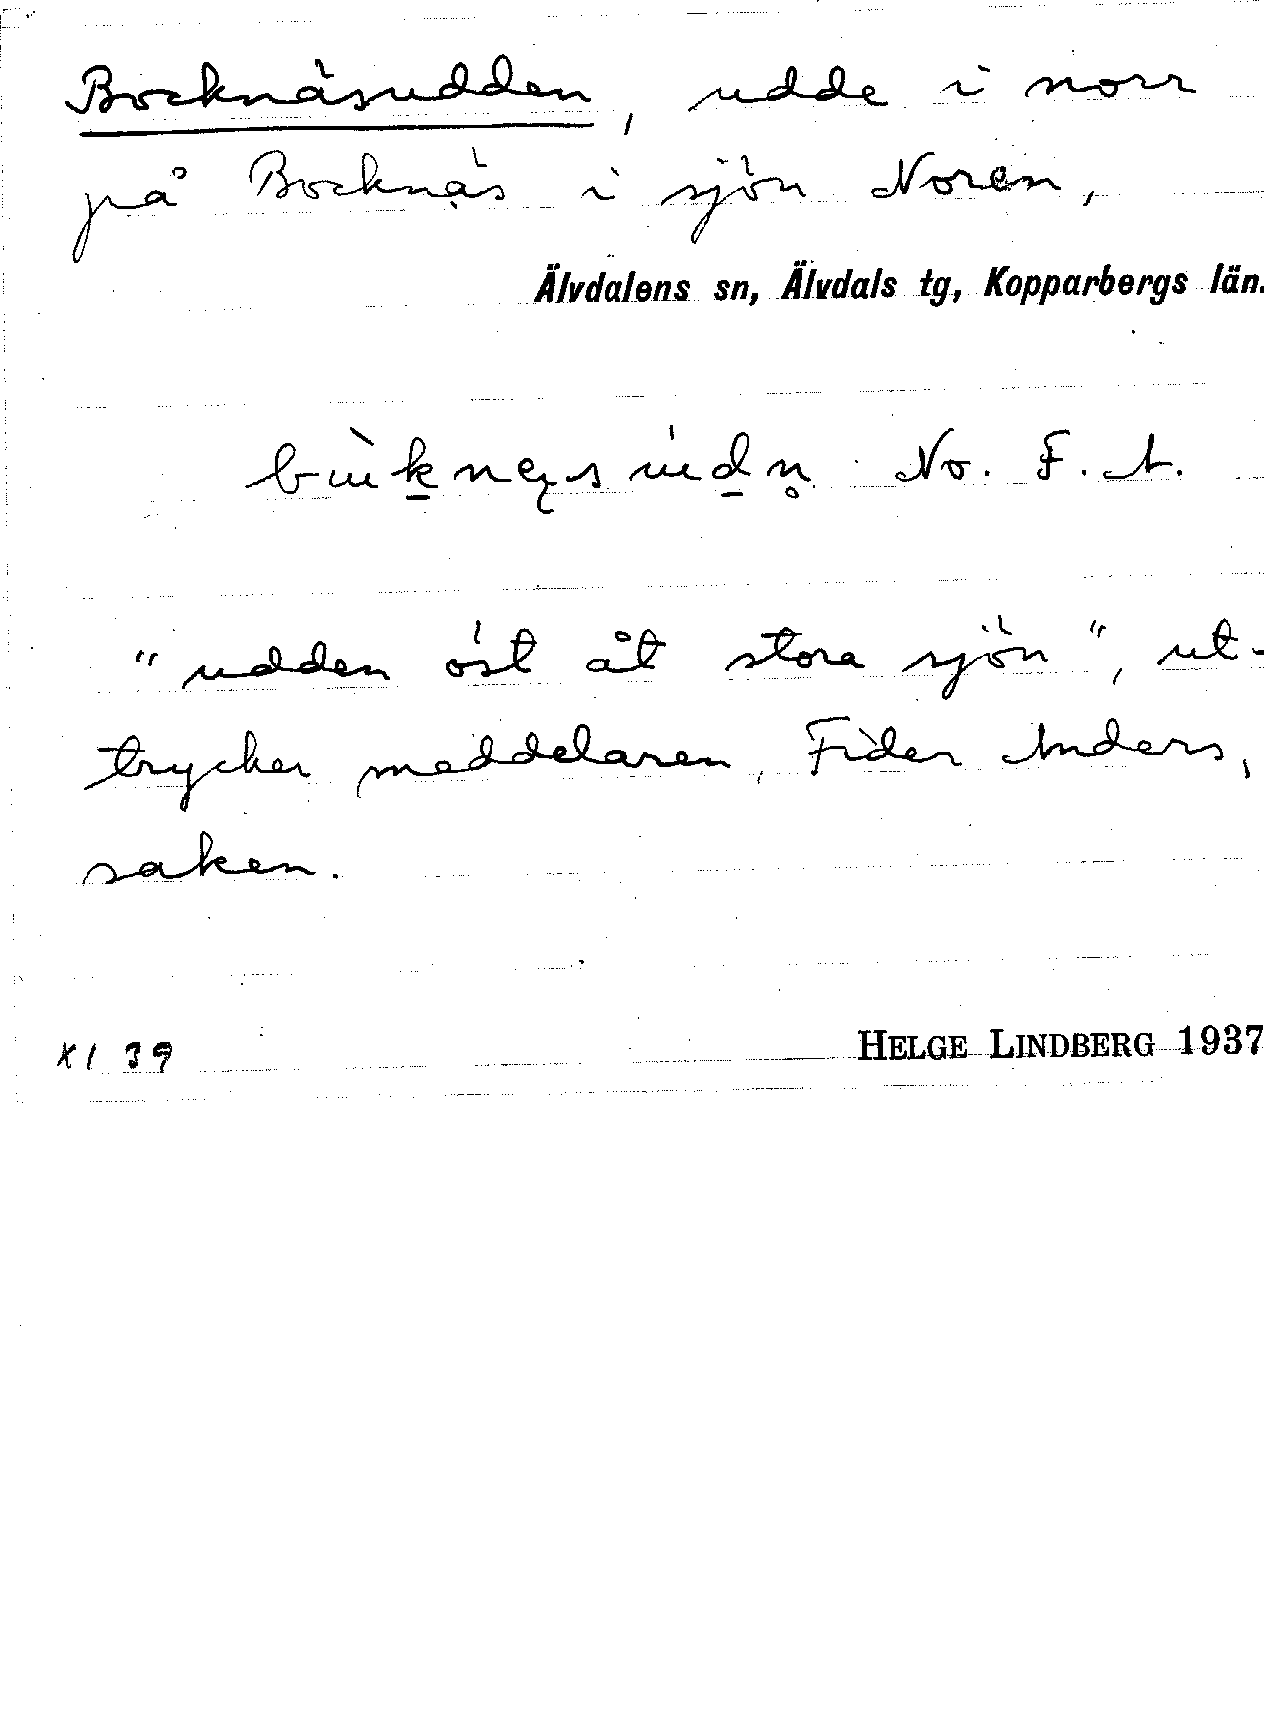 Bocknäsudden, udde i norr
på Bocknäs i sjön Noren,
Älvdalens sn, Älvdals tg, Kopparbergs län.
No. F. A.
"udden öst åt stora sjön", ut-
trycker meddelaren, Fider Anders,
saken.
XI 39
HELGE LINDBERG 1937